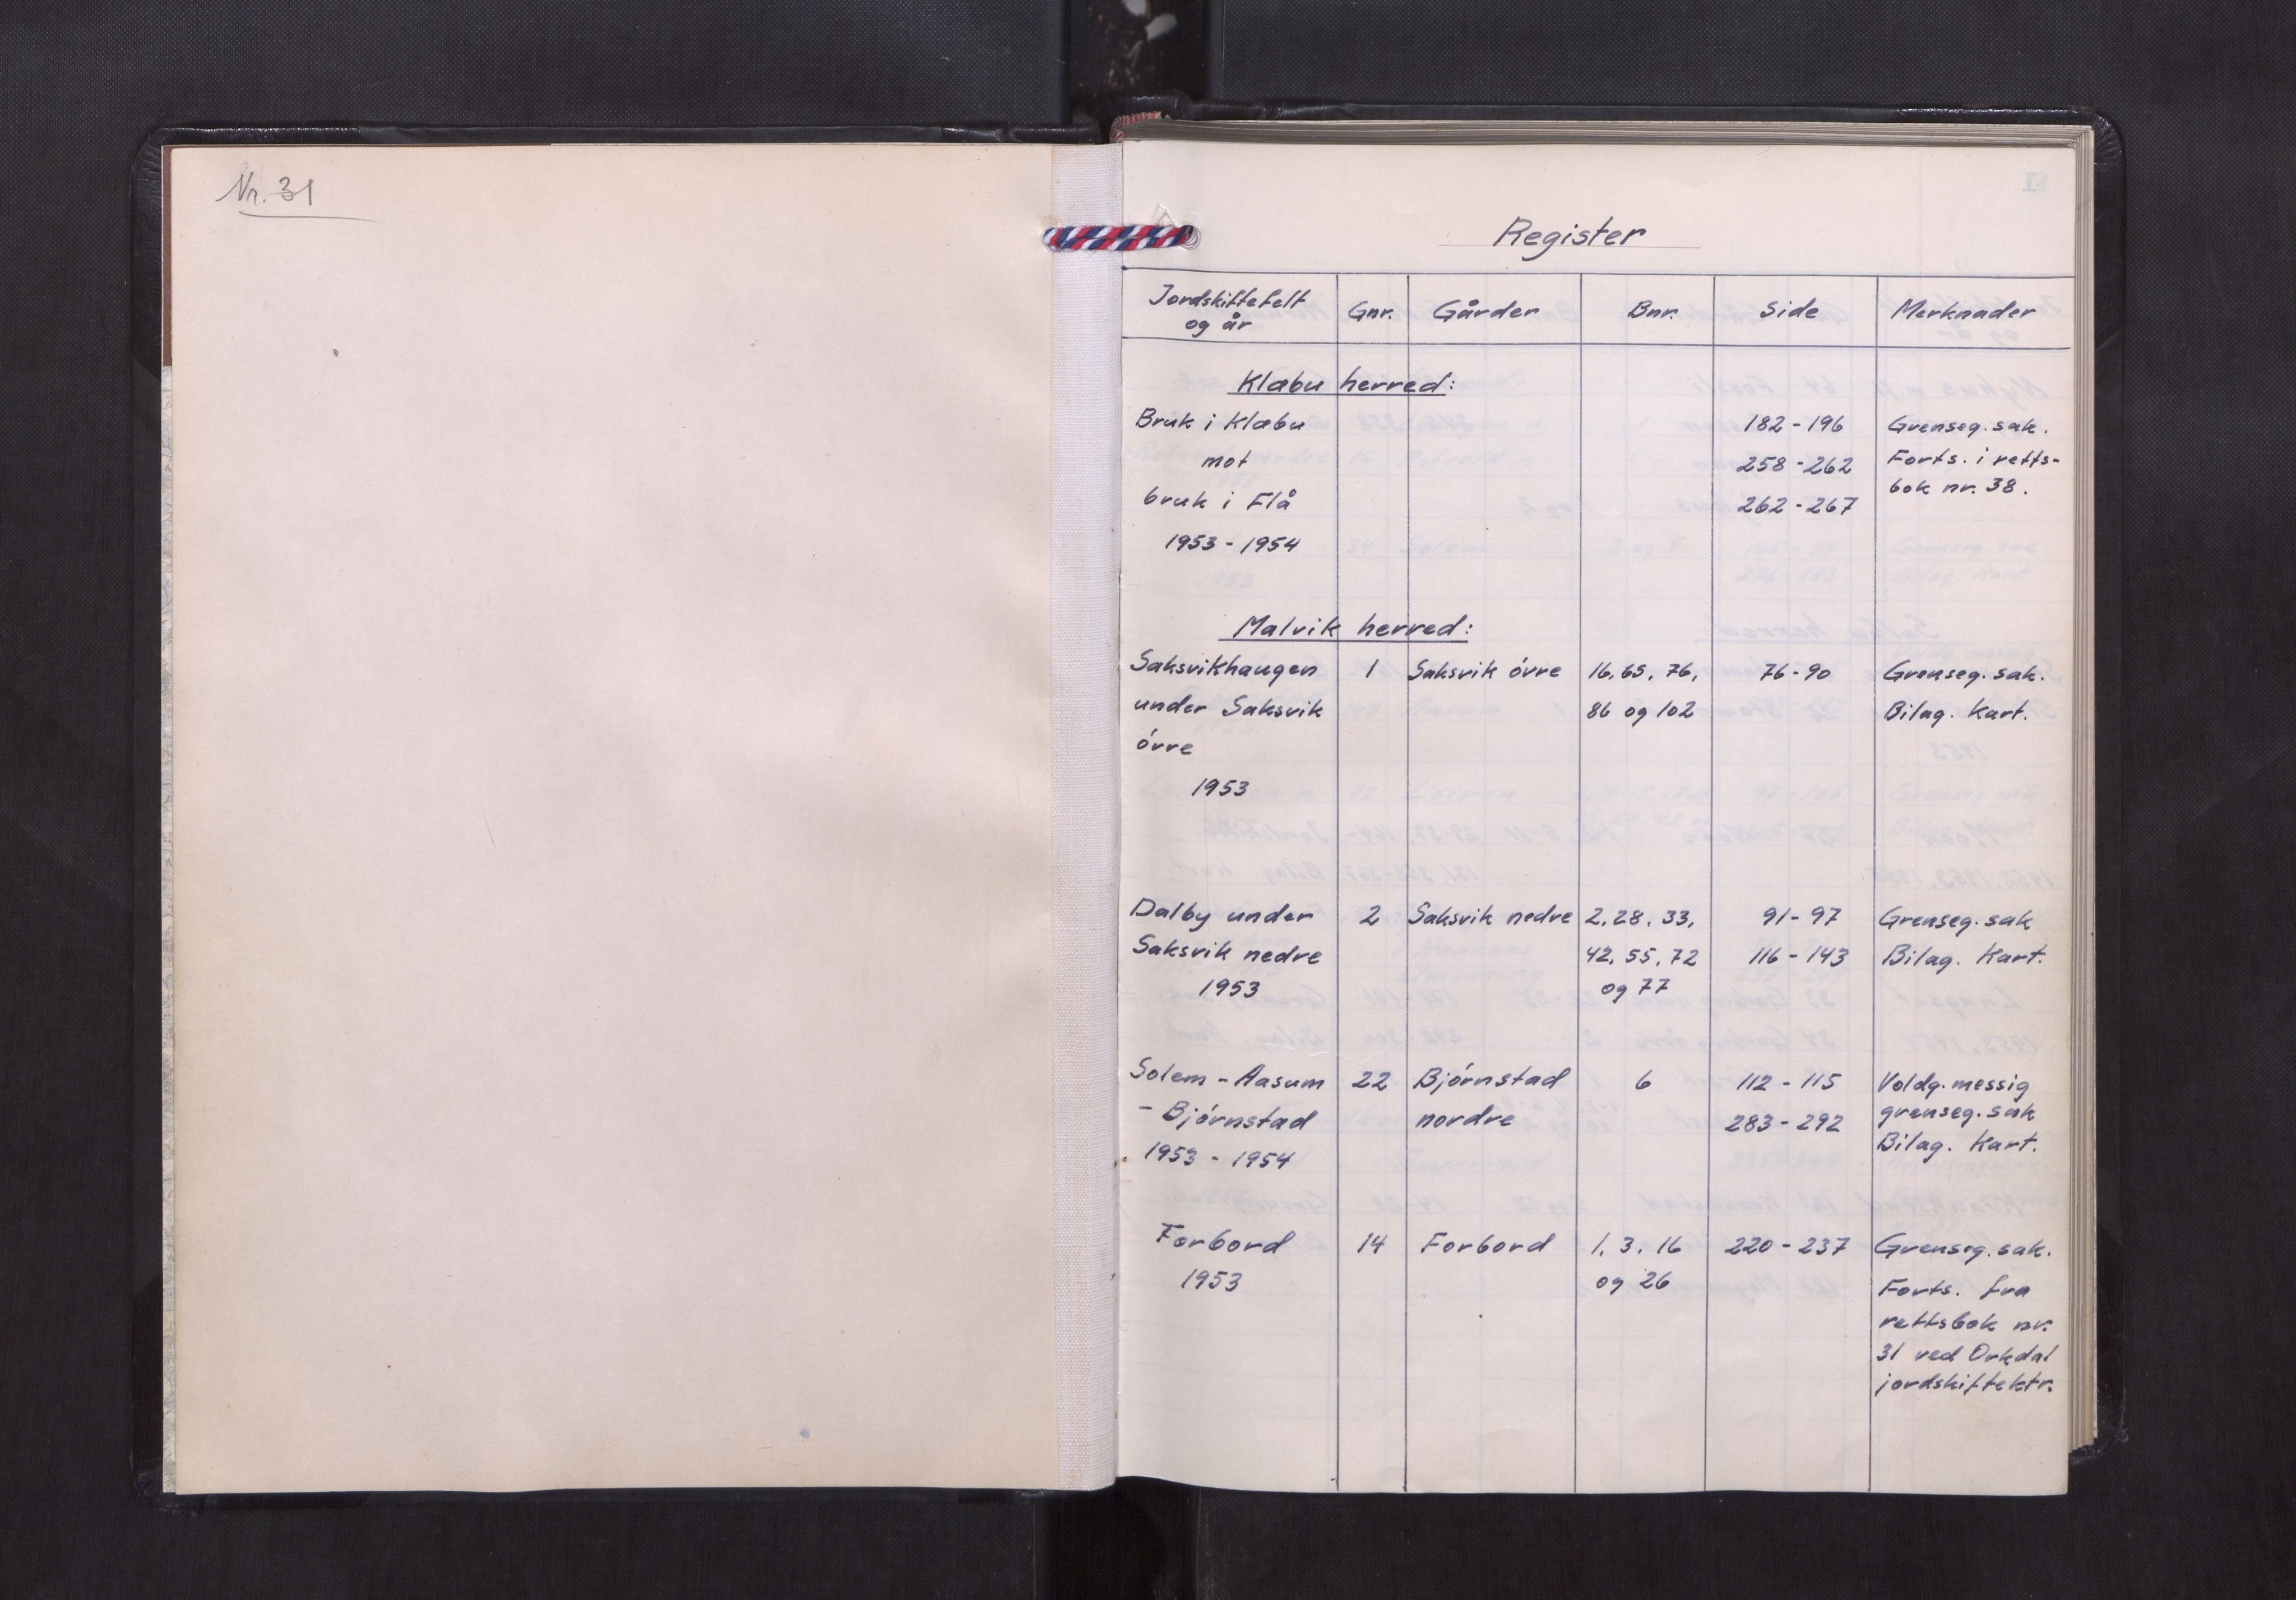 Nr. 31
Register
Jordskiftefelt og år | Gnr. | Gårder | Bnr. | Side | Merknader
Klæbu herred:
Bruk i Klæbu | 182 - 196 | Grenseg. sak.
mot | 258 - 262 | Forts. i retts-
bruk i Flå | 262 - 267 | bok nr. 38.
1953 - 1954
Malvik herred:
Saksvikhaugen | 1 | Saksvik övre | 16, 65, 76, | 76 - 90 | Grenseg. sak.
under Saksvik | 86 og 102 | Bilag. Kart.
övre
1953
Dalby under | 2 | Saksvik nedre | 2, 28, 33, | 91 - 97 | Grenseg. sak
Saksvik nedre | 42, 55, 72 | 116 - 143 | Bilag. Kart.
1953 | og 77
Solem - Aasum | 22 | Björnstad | 6 | 112 - 115 | Voldg. messig
- Björnstad | nordre | 283 - 292 | grenseg. sak
1953 - 1954 | Bilag. Kart.
Forbord | 14 | Forbord | 1, 3, 16 | 220 - 237 | Grenseg. sak.
1953 | og 26 | Forts. fra
rettsbok nr.
31 ved Orkdal
jordskiftektr.